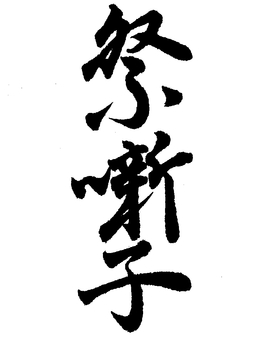 祭囃子